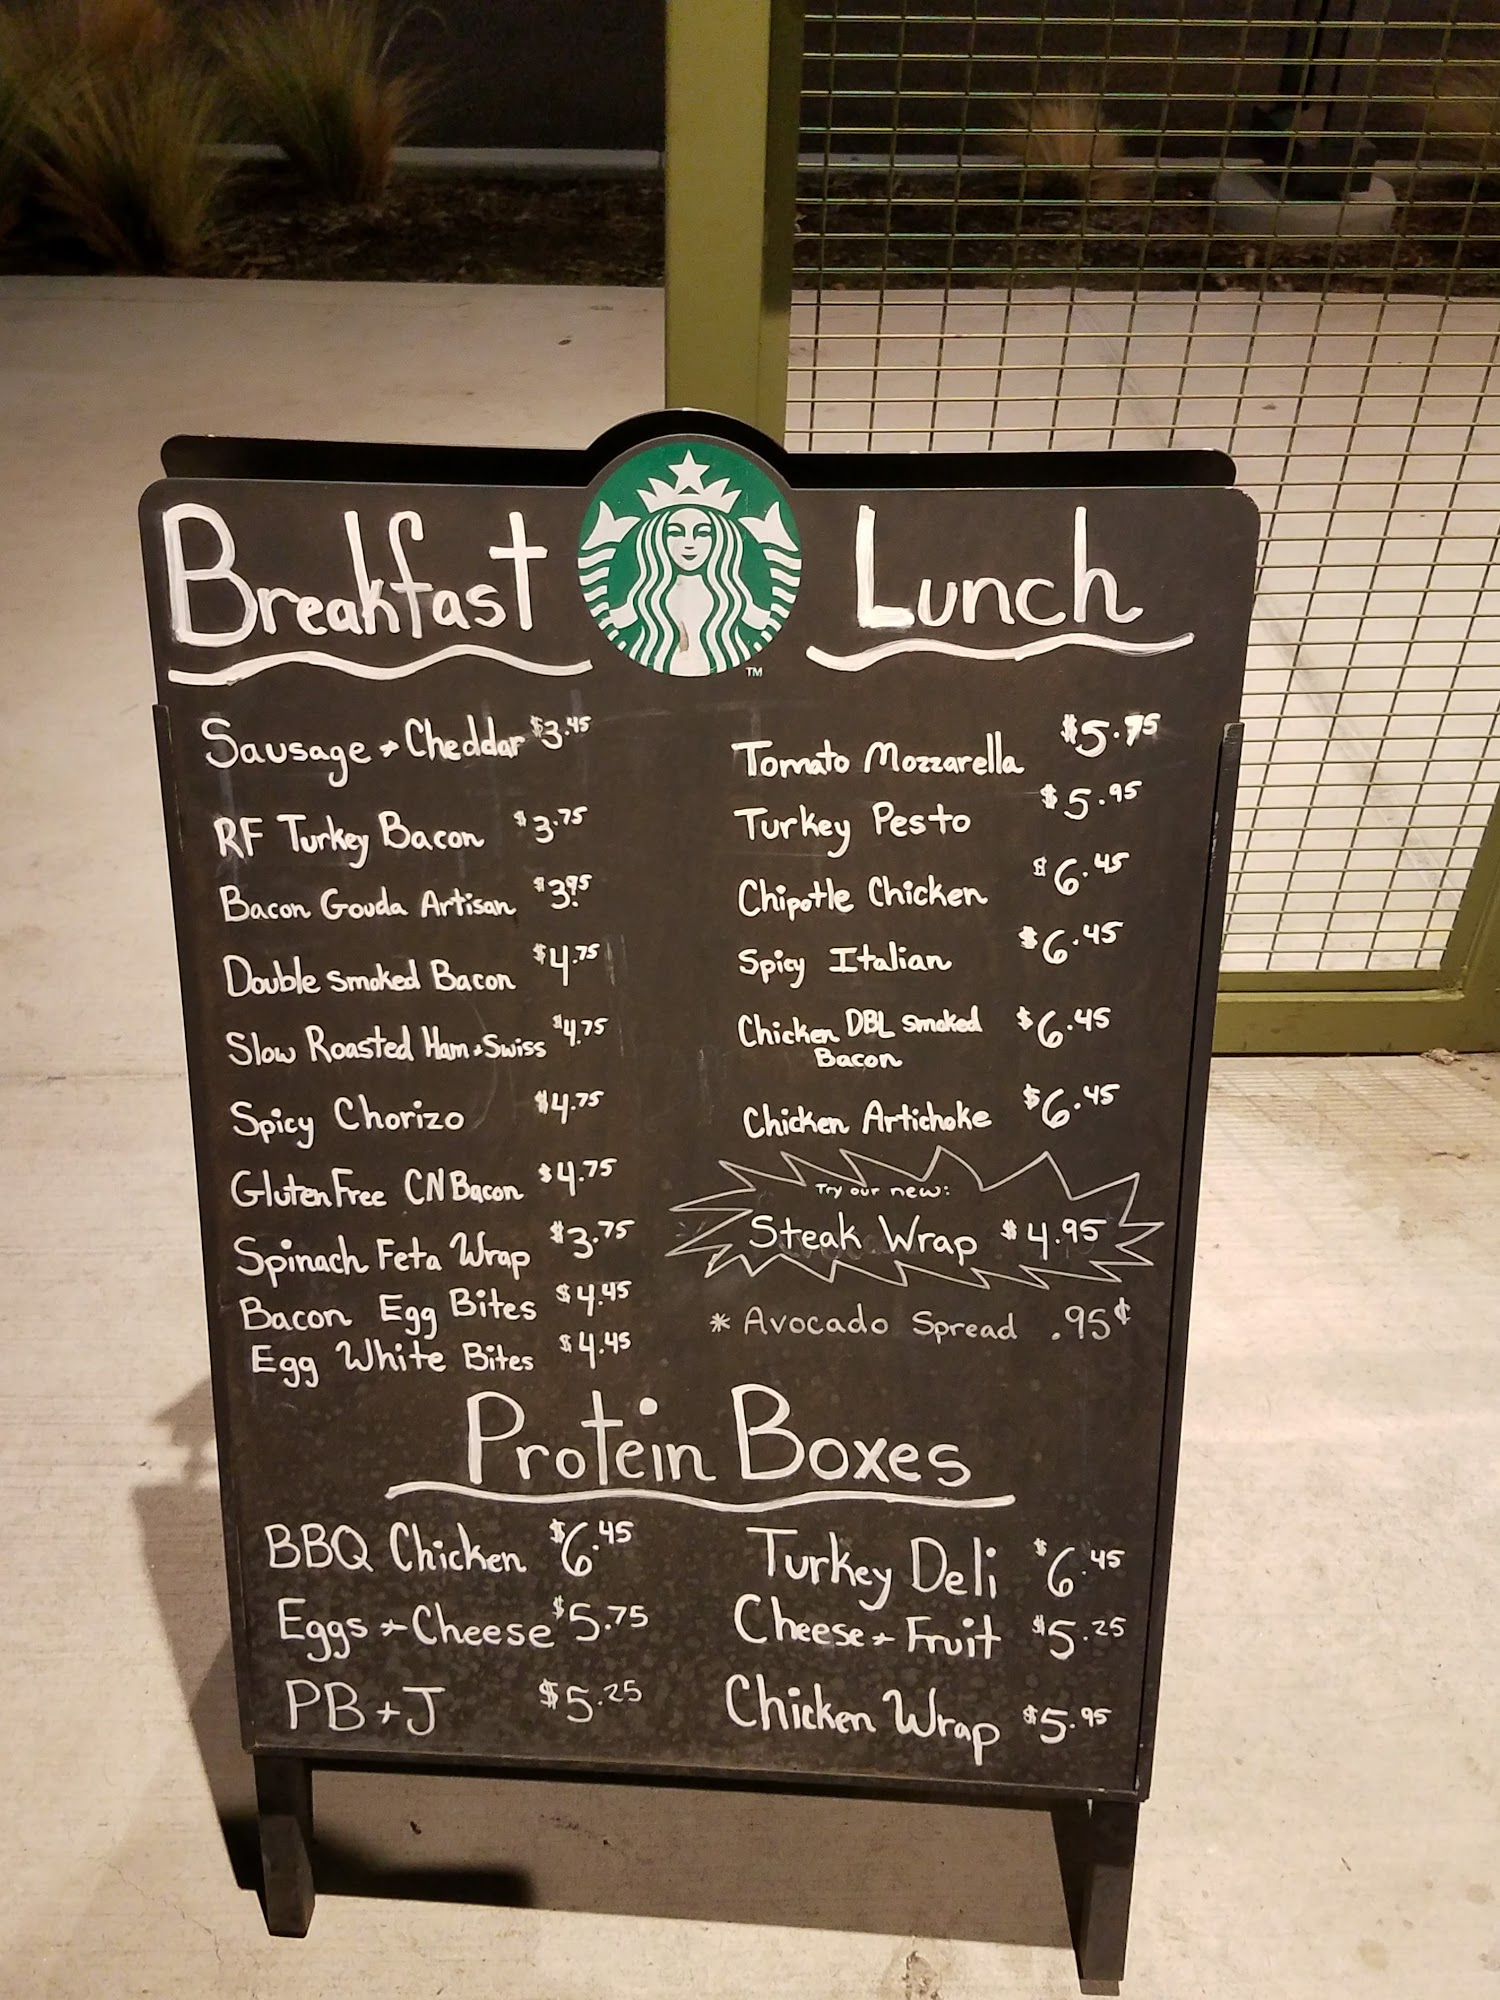 Breakfast
Sausage + Cheddar $3.45
RF Turkey Bacon $3.75
Bacon Gouda Artisan $3.95
Double Smoked Bacon $4.75
Slow Roasted Ham + Swiss $4.75
Spicy Chorizo $4.75
Gluten Free CN Bacon $4.75
Spinach Feta Wrap $3.75
Bacon Egg Bites $4.45
Egg White Bites $4.45
TM
Lunch
Tomato Mozzarella $5.75
Turkey Pesto $5.95
Chipotle Chicken $6.45
Spicy Italian $6.45
Chicken DBL Smoked $6.45
Bacon
Chicken Artichoke $6.45
Try our new:
Steak Wrap $4.95
* Avocado Spread .95¢
Protein Boxes
BBQ Chicken $6.45
Eggs + Cheese $5.75
PB + J $5.25
Turkey Deli $6.45
Cheese + Fruit $5.25
Chicken Wrap $5.95